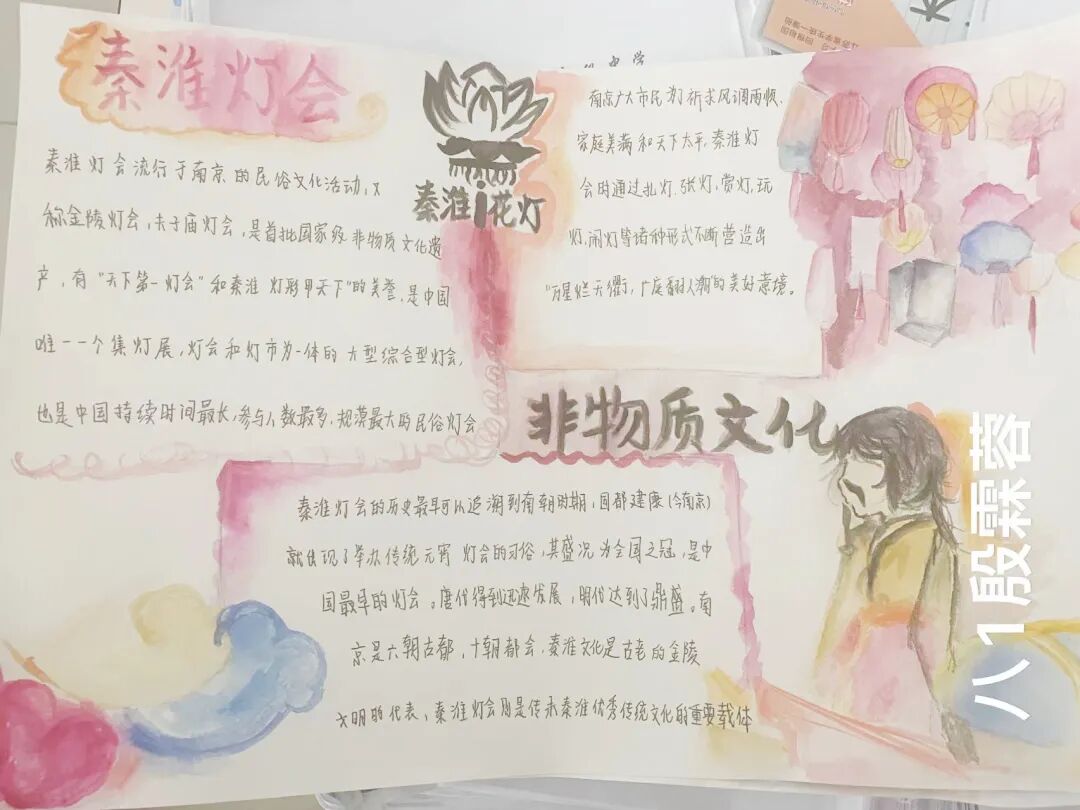 秦淮灯会
秦淮灯会流行于南京的民俗文化活动,又
称金陵灯会,夫子庙灯会,是首批国家级非物质文化遗
产,有“天下第一灯会”和秦淮灯彩甲天下”的美誉,是中国
唯一一个集灯展,灯会和灯市为一体的大型综合型灯会,
也是中国持续时间最长,参与人数最多,规模最大的民俗灯会
秦淮花灯
南京广大市民为祈求风调雨顺、
家庭美满和天下太平,秦淮灯
会时通过扎灯,张灯,赏灯,玩
灯,闹灯等诸种形式不断营造出
“万星烂天衢,广庭翻人潮”的美好意境。
非物质文化
秦淮灯会的历史最早可以追溯到南朝时期,国都建康(今南京)
就出现了举办传统元宵灯会的习俗,其盛况为全国之冠,是中
国最早的灯会。唐代得到迅速发展,明代达到了鼎盛。南
京是六朝古都,十朝都会,秦淮文化是古老的金陵
文明的代表,秦淮灯会则是传承秦淮优秀传统文化的重要载体
八1殷霖蓉